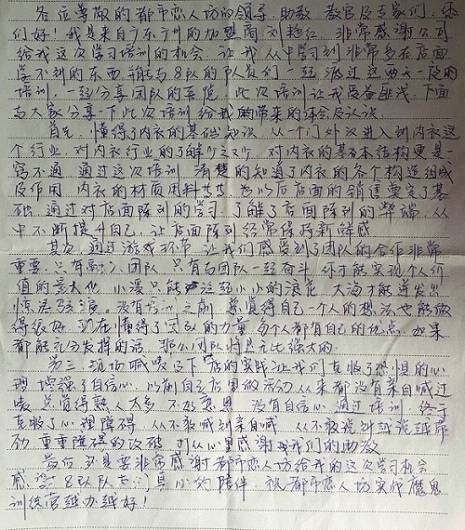 各位尊敬的都市恋人坊的领导、助教、教官及专家们，您
们好！我是来自广东广州的加盟商刘 非常感谢公司
给我这次学习培训的机会，让我从中学习到非常多在店面
学不到的东西，能与8队的队员们一起 过这两天 的
培训，一起分享团队的 此次培训让我受益匪浅，下面
与大家分享一下此次培训给我的带来的体会及认识。
首先，懂得了内衣的基础知识，从一个门外汉进入到内衣这
个行业，对内衣行业的了解少之又少，对内衣的基本结构更是一
窍不通，通过这次培训，清楚的知道了内衣的各个构造组成
及作用，内衣的材质用料 为以后店面的销售奠定了基
础，通过对店面陈列的学习，了解了店面陈列的弊端，从
中不断提升自己，让店面陈列经常保持新鲜感
其次，通过游戏环节，让我们感受到了团队的合作非常
重要，只有融入团队，只有与团队一起奋斗，你才能实现个人价
值的最大化，小溪只能泛起小小的浪花，大海才能迸发出
惊涛骇浪。没有培训之前，总觉得自己一个人的想法也能做
得很好，现在懂得了团队的力量，每个人都有自己的优点，如果
都能充分发挥的话，那么团队将是无比强大的。
第三，现场喊麦及下店的实践让我们克服了恐惧的心
理，增强了自信心，以前自己店里做活动从来都没有亲自喊过
麦，总觉得熟人太多，不好意思，没有自信心，通过培训，终于
克服了心理障碍，从不敢喊到亲自喊，从不敢说到越说越带
劲，重重障碍的攻破，打从心里感谢我们的助教
最后，还是要非常感谢都市恋人坊给我的这次学习机会
感谢8队队长 具心的陪伴，祝都市恋人坊实战魔鬼
训练营越办越好！